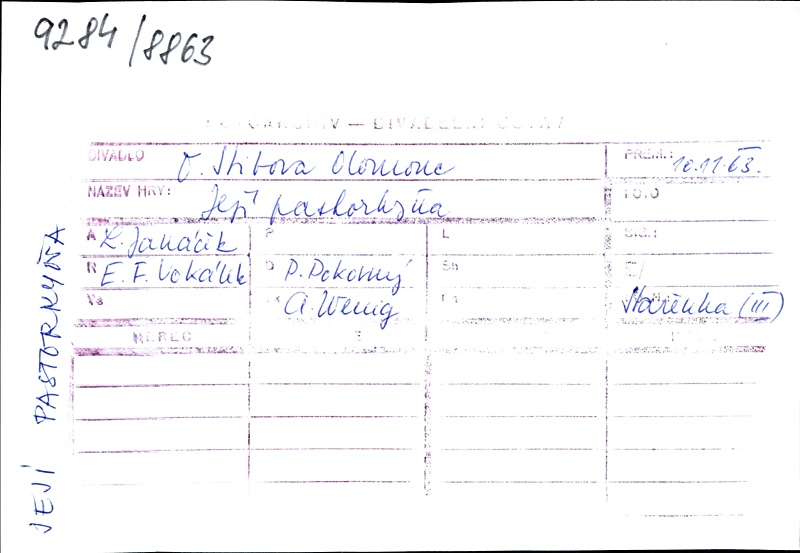 9284/8863
DIVADLO O. Stibora Olomouc PREM.: 10.11.63.
NÁZEV HRY: Její pastorkyňa FOTO
A L. Janáček P L SIG.:
R E. F. Vokálek D P. Pokorný Sh
Vs A. Wenig Stařenka (III)
HEREC
JEJÍ PASTORKYŇA